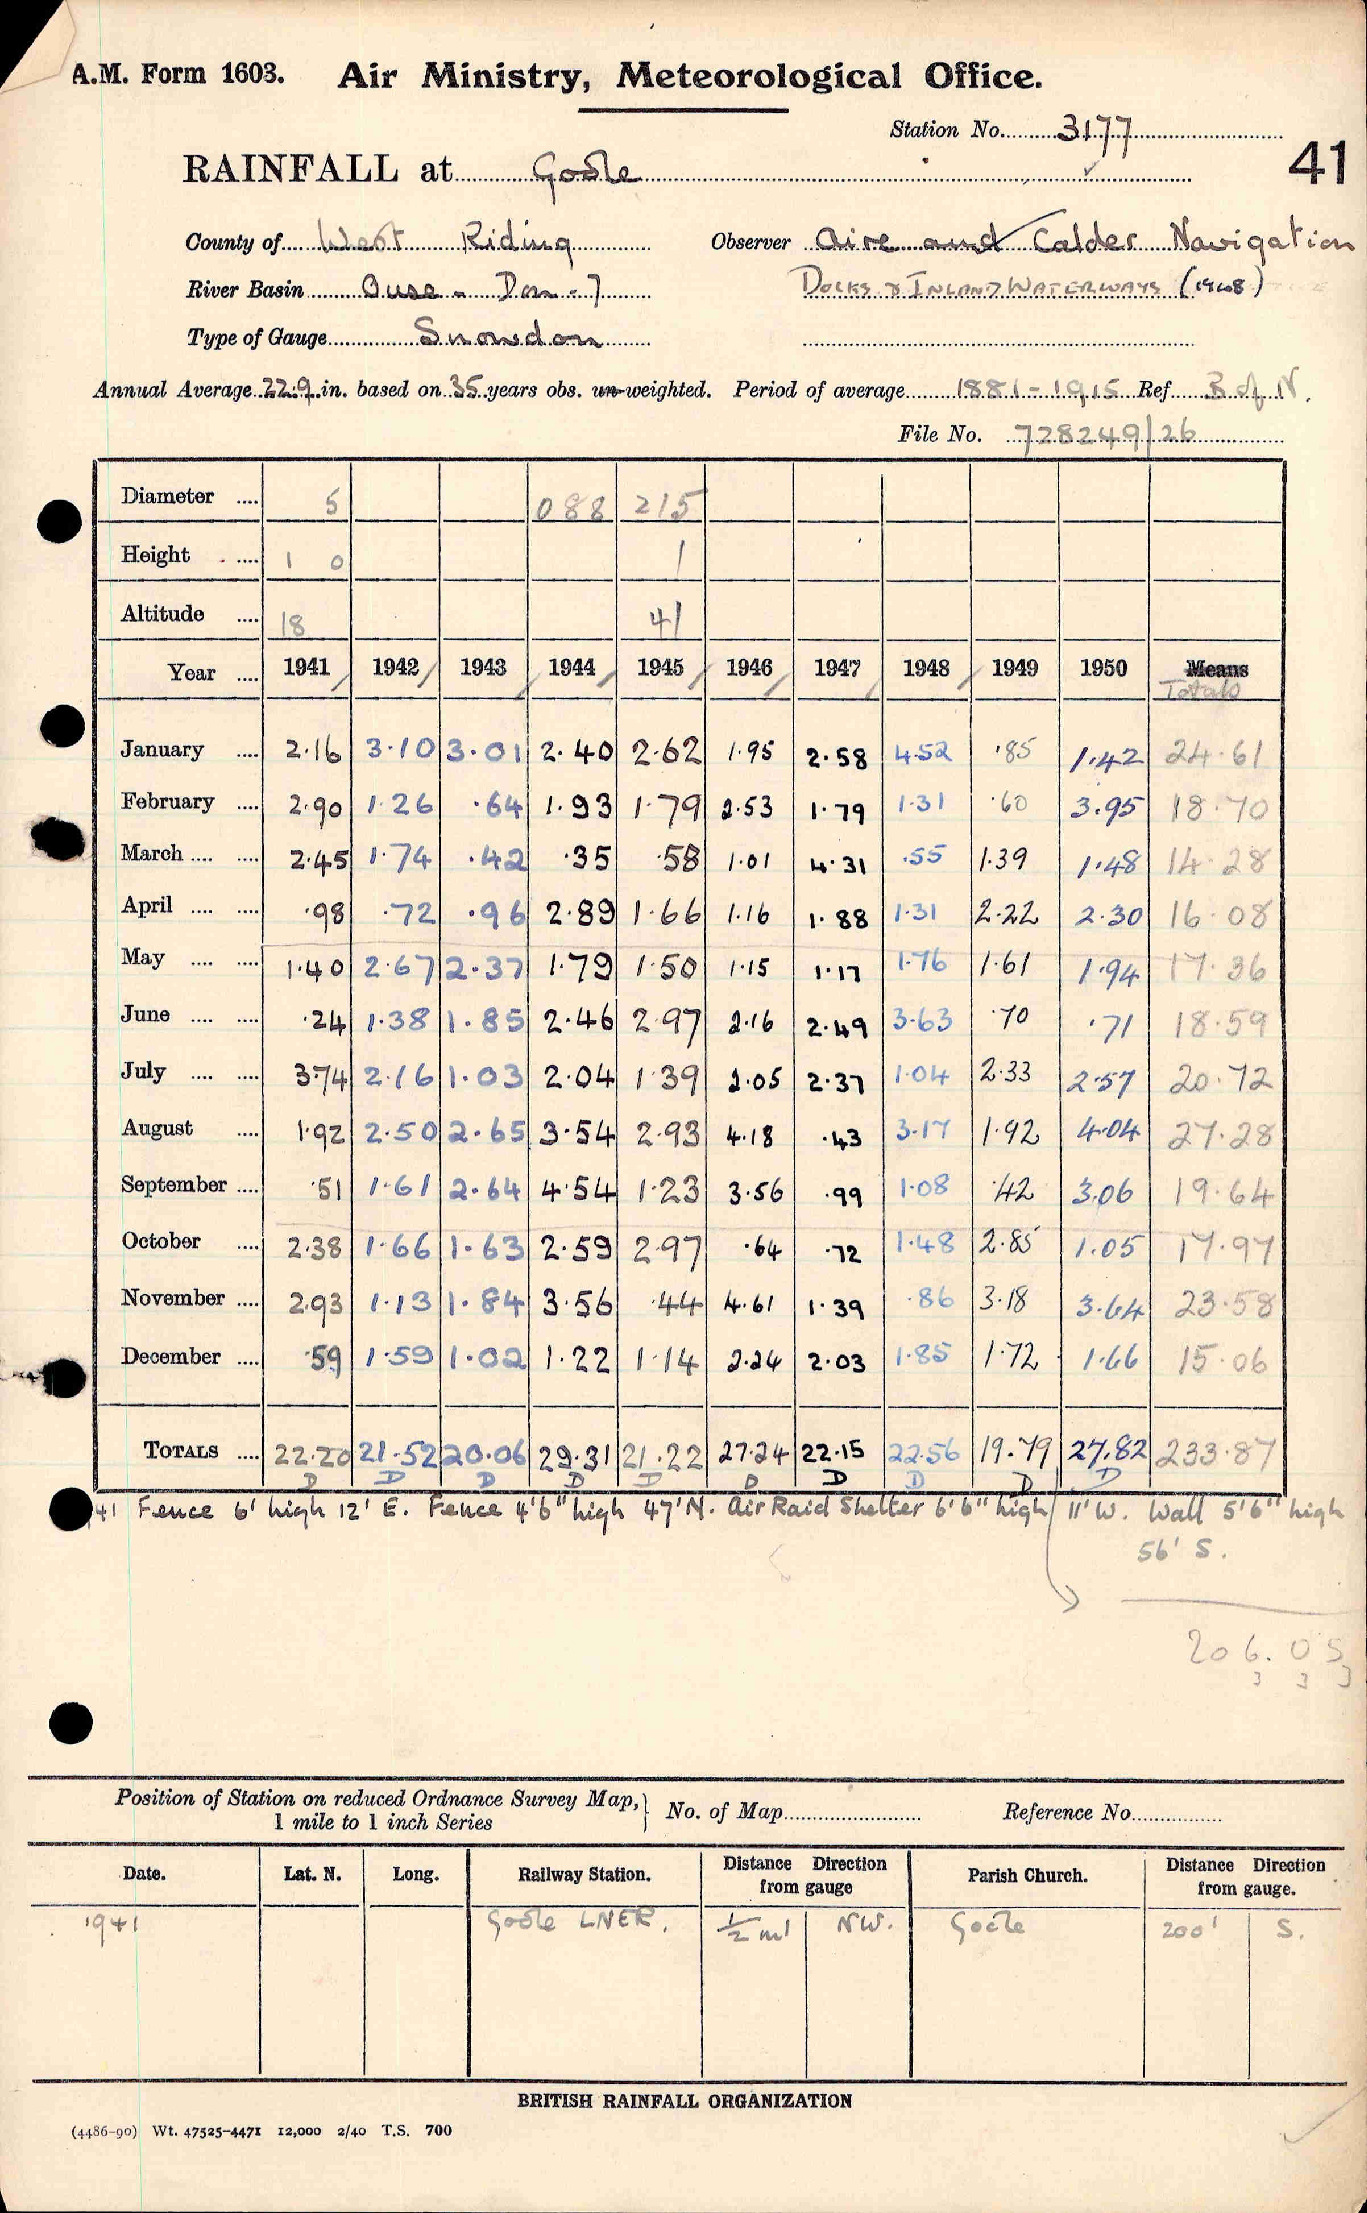 A.M. Form 1603. Air Ministry, Meteorological Office.
Station No. 3177
41
RAINFALL at Goole
County of West Riding Observer Aire and Calder Navigation
River Basin Ouse - Don - 7 DOCKS & INLAND WATERWAYS (1948)
Type of Gauge Snowdon
Annual Average 22.9 in. based on 35 years obs. un-weighted. Period of average 1881-1915 Ref B of N.
File No. 728249/26
Diameter .... 5 088 215
Height .... 1 0 1
Altitude .... 18 41
Year .... 1941 1942 1943 1944 1945 1946 1947 1948 1949 1950 Means
Totals
January .... 2.16 3.10 3.01 2.40 2.62 1.95 2.58 4.52 .85 1.42 24.61
February .... 2.90 1.26 .64 1.93 1.79 2.53 1.79 1.31 .60 3.95 18.70
March .... .... 2.45 1.74 .42 .35 .58 1.01 4.31 .55 1.39 1.48 14.28
April .... .... .98 .72 .96 2.89 1.66 1.16 1.88 1.31 2.22 2.30 16.08
May .... .... 1.40 2.67 2.37 1.79 1.50 1.15 1.17 1.76 1.61 1.94 17.36
June .... .... .24 1.38 1.85 2.46 2.97 2.16 2.49 3.63 .70 .71 18.59
July .... .... 3.74 2.16 1.03 2.04 1.39 2.05 2.37 1.04 2.33 2.57 20.72
August .... 1.92 2.50 2.65 3.54 2.93 4.18 .43 3.17 1.92 4.04 27.28
September .... .51 1.61 2.64 4.54 1.23 3.56 .99 1.08 .42 3.06 19.64
October .... 2.38 1.66 1.63 2.59 2.97 .64 .72 1.48 2.85 1.05 17.97
November .... 2.93 1.13 1.84 3.56 .44 4.61 1.39 .86 3.18 3.64 23.58
December .... .59 1.59 1.02 1.22 1.14 2.24 2.03 1.85 1.72 1.66 15.06
TOTALS .... 22.20 21.52 20.06 29.31 21.22 27.24 22.15 22.56 19.79 27.82 233.87
D D D D D D D D D D
41 Fence 6' high 12' E. Fence 4'6" high 47' N. Air Raid Shelter 6'6" high 11' W. Wall 5'6" high
56' S.
206.05
3 3 3
Position of Station on reduced Ordnance Survey Map, No. of Map Reference No.
1 mile to 1 inch Series
Date. Lat. N. Long. Railway Station. Distance from gauge Direction Parish Church. Distance from gauge. Direction
1941 Goole LNER. 1/2 ml NW. Goole 200' S.
BRITISH RAINFALL ORGANIZATION
(4486-90) Wt. 47525-4471 12,000 2/40 T.S. 700